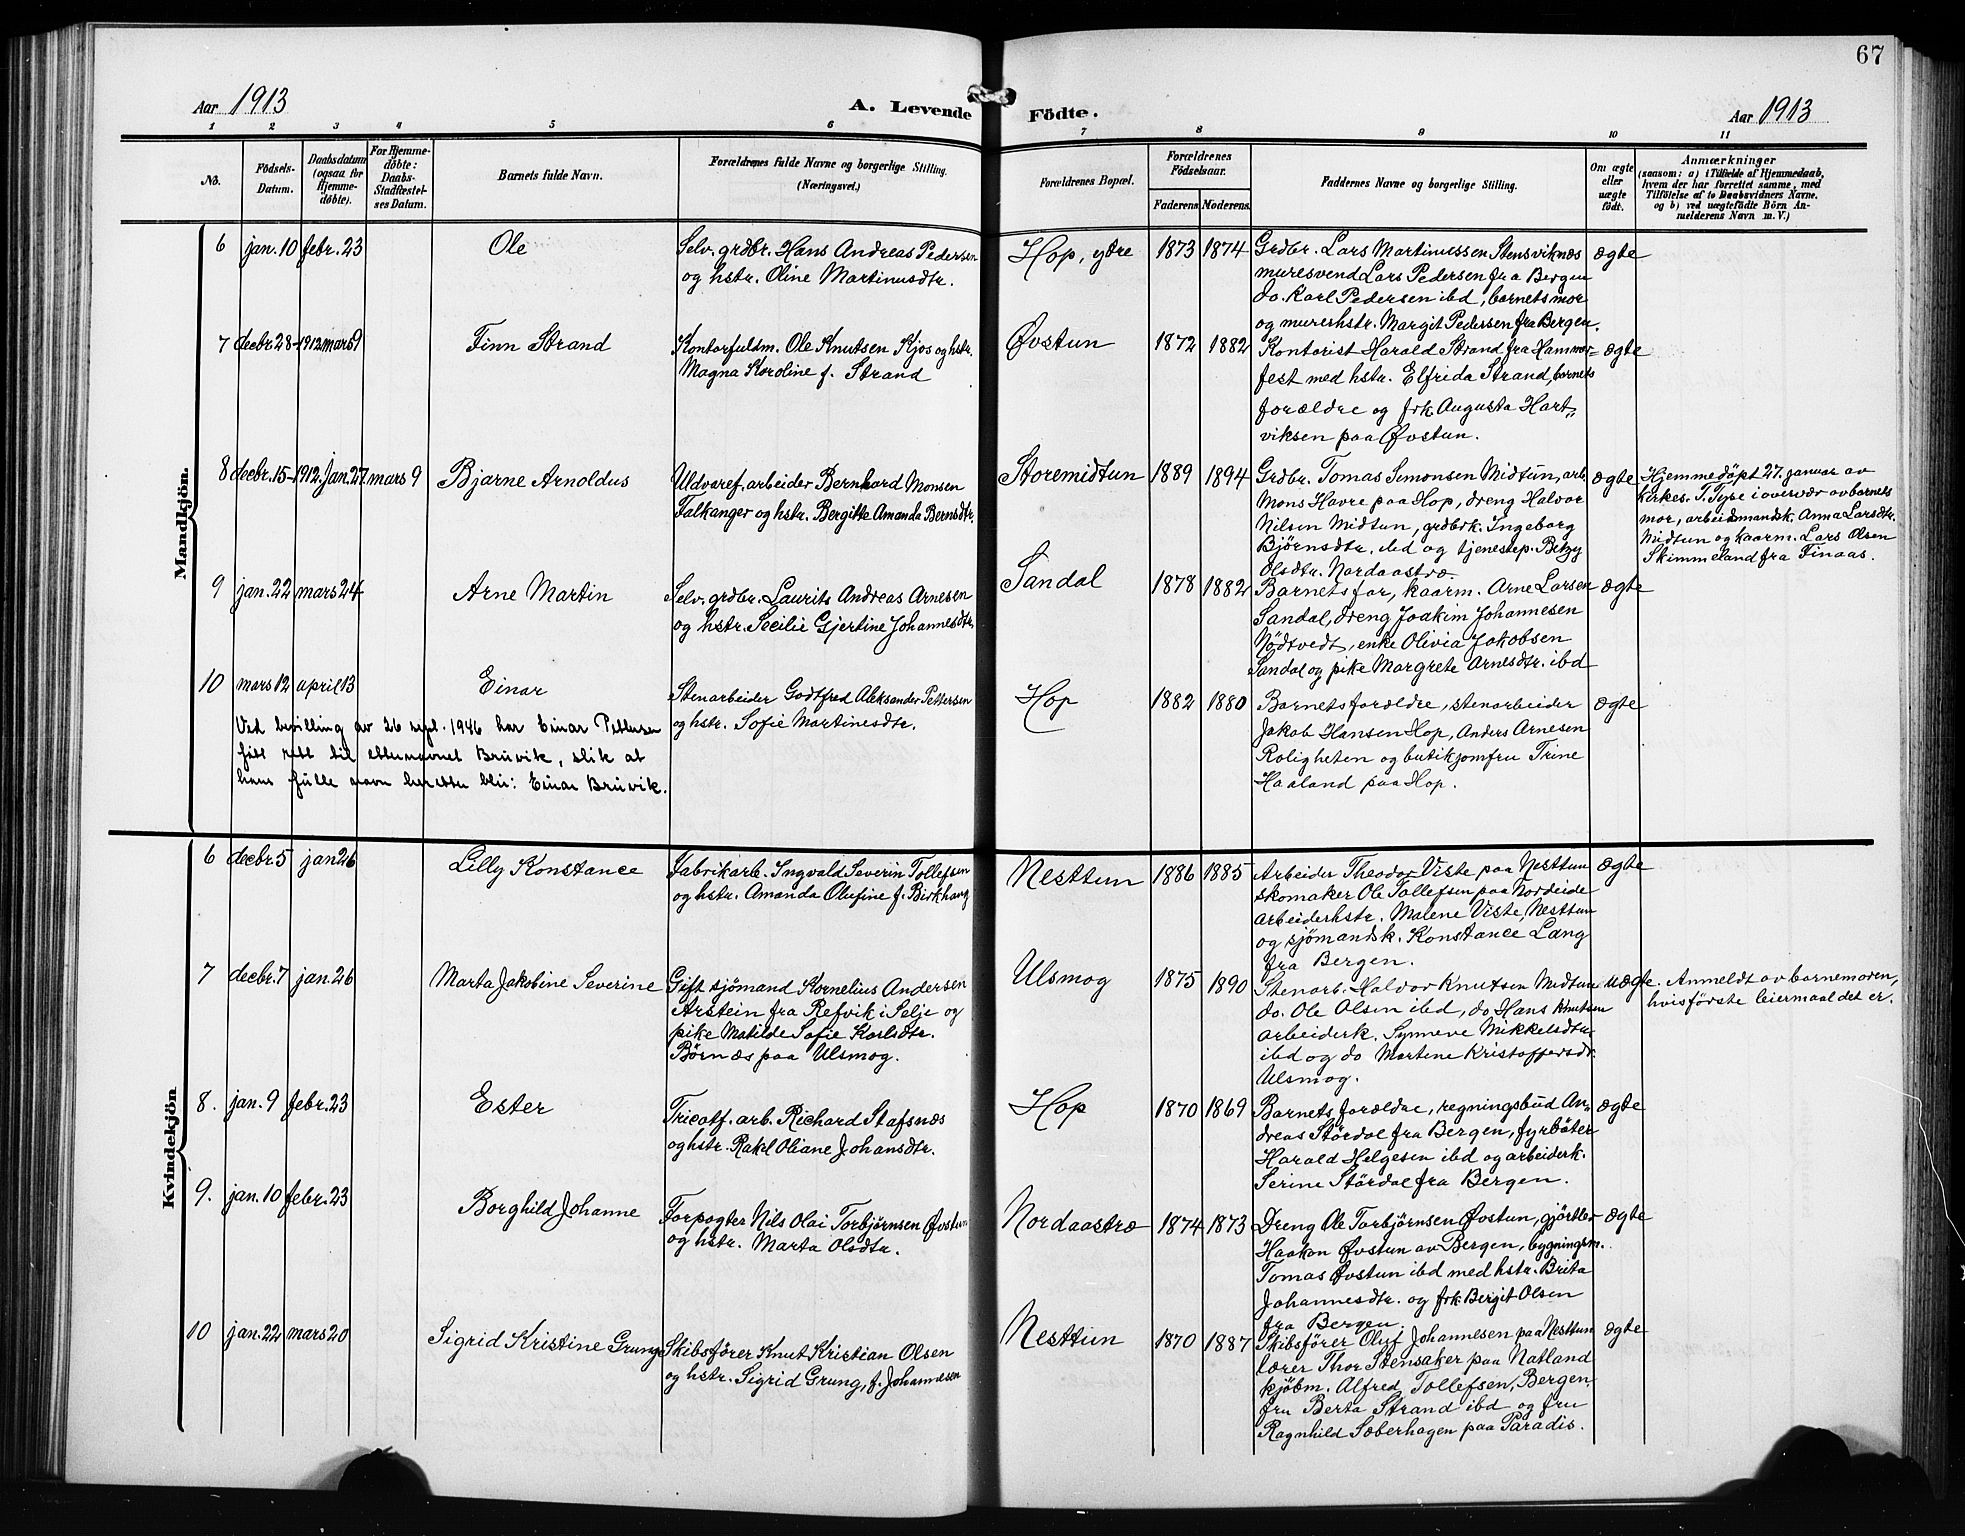 67
Aar 1913
A. Levende Födte.
Aar 1913
1 2 3 4 5 6 7 8 9 10 11
No.
Födsels-Datum.
Daabsdatum (ogsaa for Hjemme-döbte).
For Hjemme-döbte: Daabs-Stadfæstel-ses Datum.
Barnets fulde Navn.
Forældrenes fulde Navne og borgerlige Stilling.
(Næringsvei.)
Forældrenes Bopæl.
Forældrenes Födselsaar.
Faderens Moderens
Faddernes Navne og borgerlige Stilling.
Om ægte eller uægte födt.
Anmærkninger
(saasom: a) i Tilfælde af Hjemmedaab,
hvem der har forrettet samme, med
Tilföielse af to Daabsvidners Navne.
og b) ved uægtefödte Börn An-
melderens Navn m. V.)
Mandkjön.
6 jan. 10 febr. 23 Ole
Selv. grdbr. Hans Andreas Pedersen
og hstr. Oline Martinusdtr.
Hop, ytre 1873 1874
Grdbr. Lars Martinussen Stensviknæs
muresvend Lars Pedersen fra Bergen
do. Karl Pedersen ibd, barnets mor
og murerhstr. Margit Pedersen fra Bergen.
ægte
7 decbr 28-1912 mars 9 Finn Strand
Kontorfuldm. Ole Knutsen Kjos og hstr.
Magna Karoline f. Strand
Øvstun 1872 1882
Kontorist Harald Strand fra Hammer-
fest med hstr. Elfrida Strand, barnets
forældre og frk Augusta Hart„
viksen paa Øvstun.
ægte
8 decbr. 15-1912 Jan. 27 mars 9 Bjarne Arnoldus
Uldvaref. arbeider Bernhard Monsen
Falkanger og hstr. Bergitte Amanda Bernsdtr.
Storemidtun 1889 1894
Grdbr. Tomas Simonsen Midtun, arb.
Mons Havre paa Hop, dreng Halvor
Nilsen Midtun, grdbrk. Ingeborg
Bjørnsdtr. ibd og tjenestep. Betzy
Olsdtr. Nordaastræ.
ægte
Hjemmedöpt 27. januar av
kirkes. T. Type i overvær av barnets
mor, arbeidsmandsk. Anna Larsdtr.
Midtun og kaarm. Lars Olsen
Skimmeland fra Finaas.
9 jan. 22 mars 24 Arne Martin
Selv. grdbr. Laurits Andreas Arnesen
og hstr. Secilie Gjertine Johannesdtr.
Sandal 1878 1882
Barnets far, kaarm. Arne Larsen
Sandal, dreng Joakim Johannesen
Nødtvedt, enke Olivia Jakobsen
Sandal og pike Margrete Arnesdtr. ibd
ægte
10 mars 12 april 13 Einar
Stenarbeider Godtfred Aleksander Pettersen
og hstr. Sofie Martinesdtr.
Hop 1882 1880
Barnets forældre, stenarbeider
Jakob Hansen Hop, Anders Arnesen
Roligheten og butikjomfru Trine
Haaland paa Hop.
ægte
Ved bevilling av 26 sept. 1946 har Einar Pettersen
fått rett til etternavnet Bruvik, slik at
hans fulle navn heretter blir: Einar Bruvik.
Kvindekjön
6 decbr. 5 jan 26 Lilly Konstance
Fabrikarb. Ingvald Severin Tollefsen
og hstr. Amanda Olufine f. Birkhaug
Nesttun 1886 1885
Arbeider Theodor Viste paa Nesttun
skomaker Ole Tollefsen paa Nordeide
arbeiderhstr. Malene Viste, Nesttun
og sjömandsk. Konstance Lang
fra Bergen.
ægte
7 decbr. 7 jan. 26 Marta Jakobine Severine
Gift sjömand Kornelius Andersen
Arstein fra Refvik i Selje og
pike Matilde Sofie Karlsdtr.
Børnæs paa Ulsmog.
Ulsmog 1875 1890
Stenarb. Halvor Knutsen Midtun
do. Ole Olsen ibd, do Hans Knutsen
arbeiderk. Synneve Mikkelsdtr
ibd og do Martine Kristoffersdtr.
Ulsmog.
uægte.
Anmeldt av barnemoren,
hvis förste leiermaal det er.
8. jan. 9 febr. 23 Ester
Tricotf. arb. Richard Stafsnæs
og hstr. Rakel Oliane Johansdtr.
Hop 1870 1869
Barnets forældre, regningsbud An„
dreas Stördal fra Bergen, fyrböter
Harald Helgesen ibd og arbeiderk.
Serine Stördal fra Bergen.
ægte
9. jan. 10 febr. 23 Borghild Johanne
Forpagter Nils Olai Torbjørnsen Øvstun
og hstr. Marta Olsdtr.
Nordaastræ 1874 1873
Dreng Ole Torbjørnsen Øvstun, gjörtler
Haakon Øvstun av Bergen, bygningsm.
Tomas Øvstun ibd med hstr. Brita
Johannesdtr. og frk Bergit Olsen
fra Bergen.
ægte
10 jan. 22 mars 20 Sigrid Kristine Grung
Skibsfører Knut Kristian Olsen
og hstr. Sigrid Grung, f. Johannesen
Nesttun 1870 1887
Skibsfører Oluf Johannesen paa Nesttun
lærer Thor Stensaker paa Natland
kjöbm. Alfred Tollefsen, Bergen.
fru Berta Strand ibd og fru
Ragnhild Søberhagen paa Paradis.
ægte